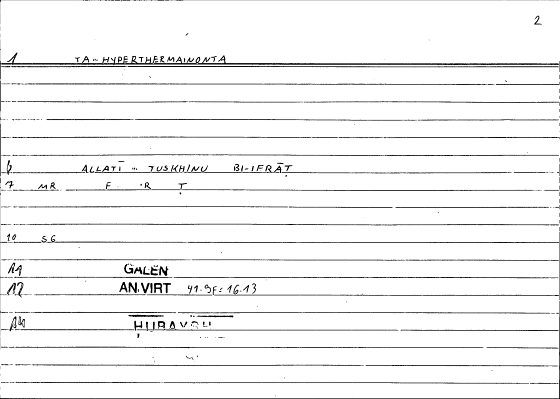 2
1 TA-HYPERTHERMAINONTA
6 ALLATĪ - TUSKHINU BI-IFRĀṬ
7 MR F R Ṭ
10 SG
11 GALEN
12 AN.VIRT 41.9F: 16.13
14